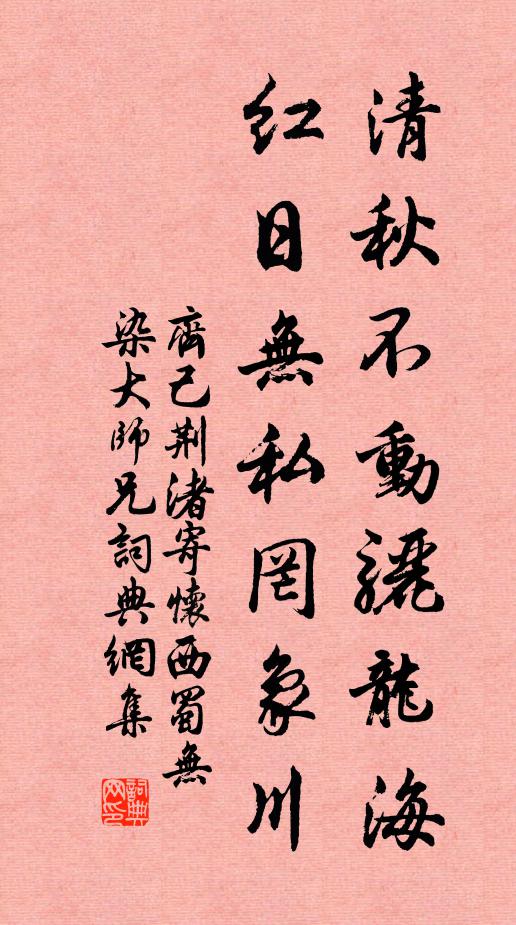 清秋不動驪龍海
紅日無私罔象川
齊己荆渚寄懷西蜀無
染大師兄詞典網集
詞典網印